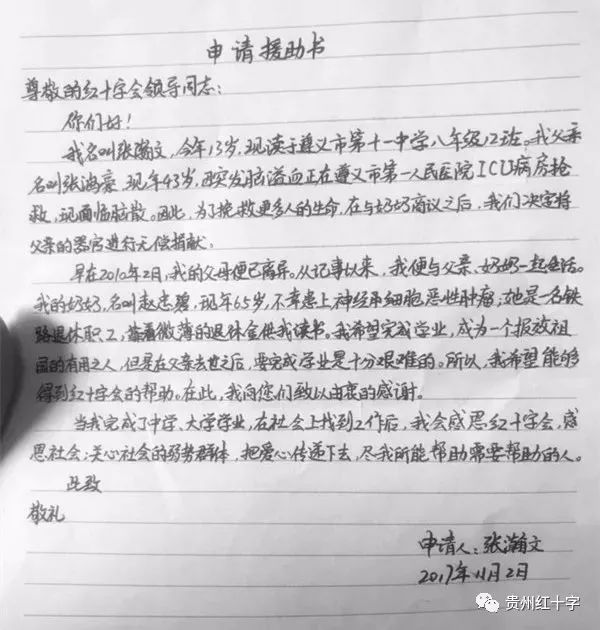 申请援助书
尊敬的红十字会领导同志：
你们好！
我名叫张瀚文，今年13岁，现读于遵义市第十一中学八年级12班。我父亲
名叫张鸿豪，现年43岁，因突发脑溢血正在遵义市第一人民医院ICU病房抢
救，现面临脑散。因此，为了挽救更多人的生命，在与奶奶商议之后，我们决定将
父亲的器官进行无偿捐献。
早在2010年2月，我的父母便已离异。从记事以来，我便与父亲、奶奶一起生活。
我的奶奶，名叫赵忠碧，现年65岁，不幸患上神经吊细胞恶性肿瘤；她是一名铁
路退休职工，靠着微薄的退休金供我读书。我希望完成学业，成为一个报效祖
国的有用之人，但是在父亲去世之后，要完成学业是十分艰难的。所以，我希望能够
得到红十字会的帮助。在此，我向您们致以由衷的感谢。
当我完成了中学、大学学业，在社会上找到工作后，我会感恩红十字会，感
恩社会；关心社会的弱势群体，把爱心传递下去，尽我所能帮助需要帮助的人。
此致
敬礼
申请人：张瀚文
2017年11月2日
贵州红十字